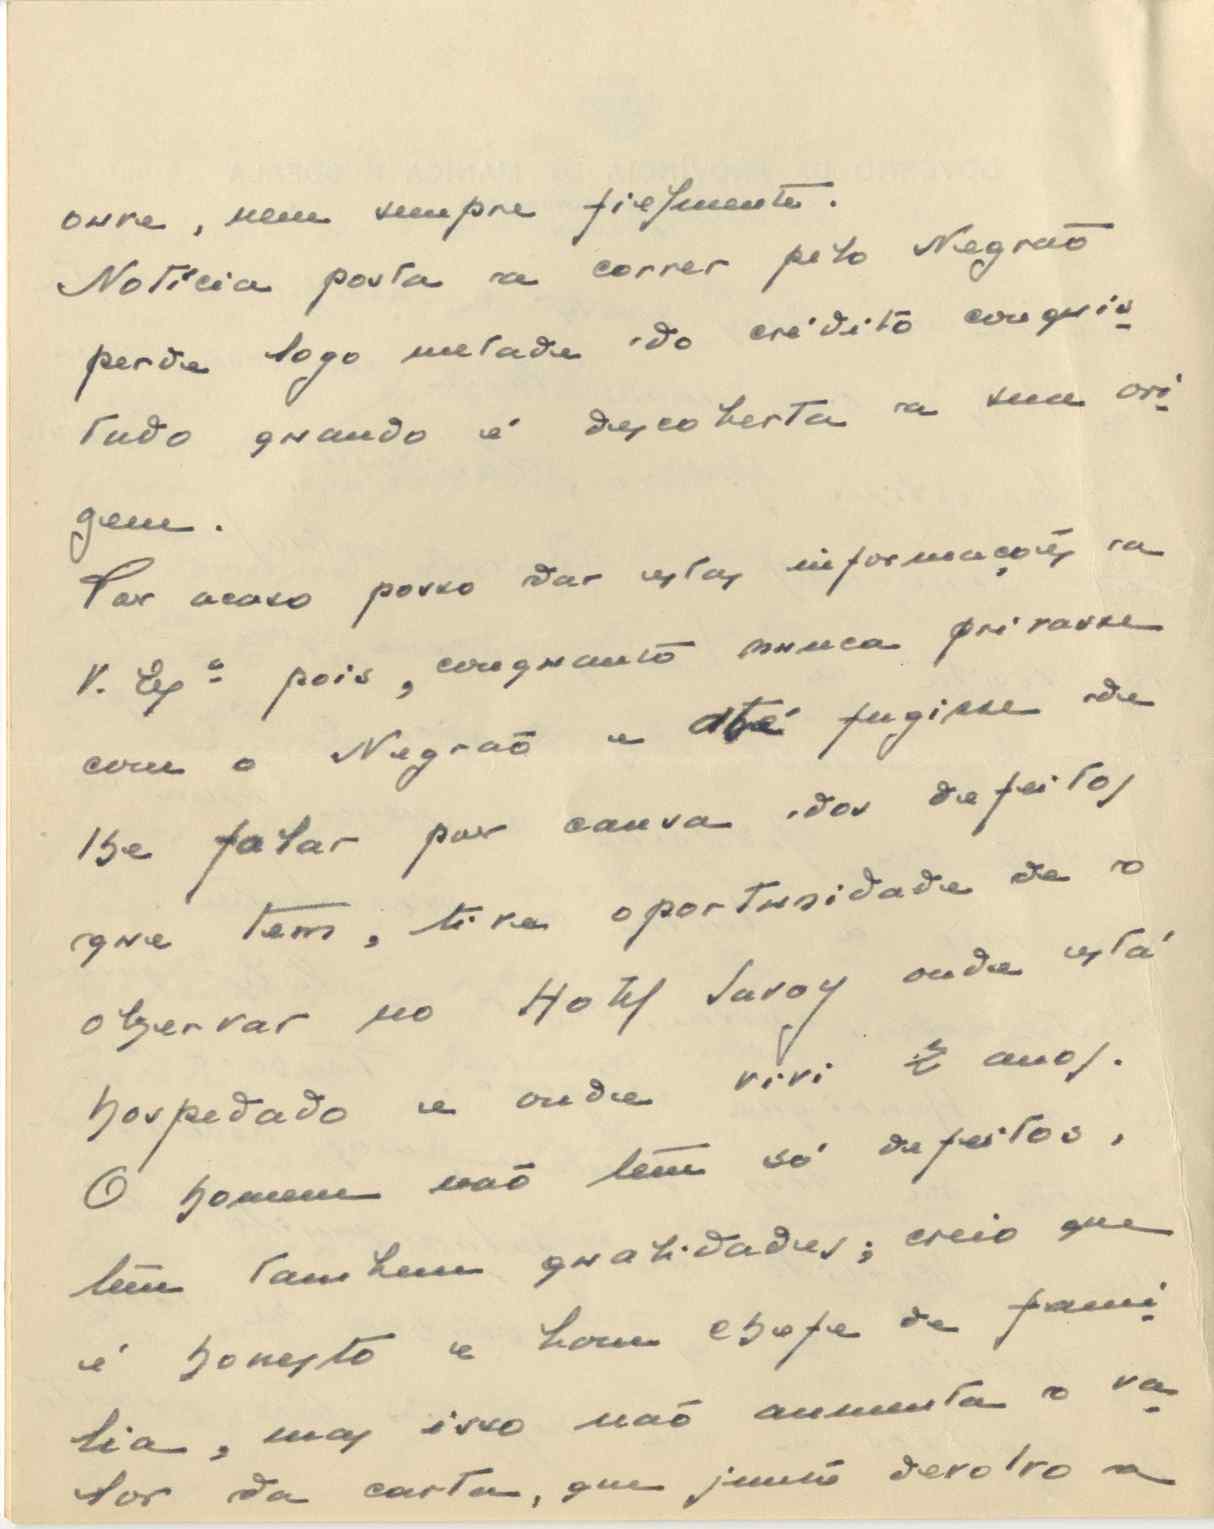 ouve, nem sempre fielmente.
Notícia posta a correr pelo Negrão
perde logo metade do crédito conquis-
tado quando é descoberta a sua ori-
gem.
Por acaso posso dar estas informações a
V. Exª pois, conquanto nunca privasse
com o Negrão e até fugisse de
lhe falar por causa dos defeitos
que tem, tive oportunidade de o
observar no Hotel Savoy onde está
hospedado e onde vivi 2 anos.
O homem não tem só defeitos,
tem tambem qualidades; creio que
é honesto e bom chefe de famí-
lia, mas isso não aumenta o va-
lor da carta, que junto devolvo a